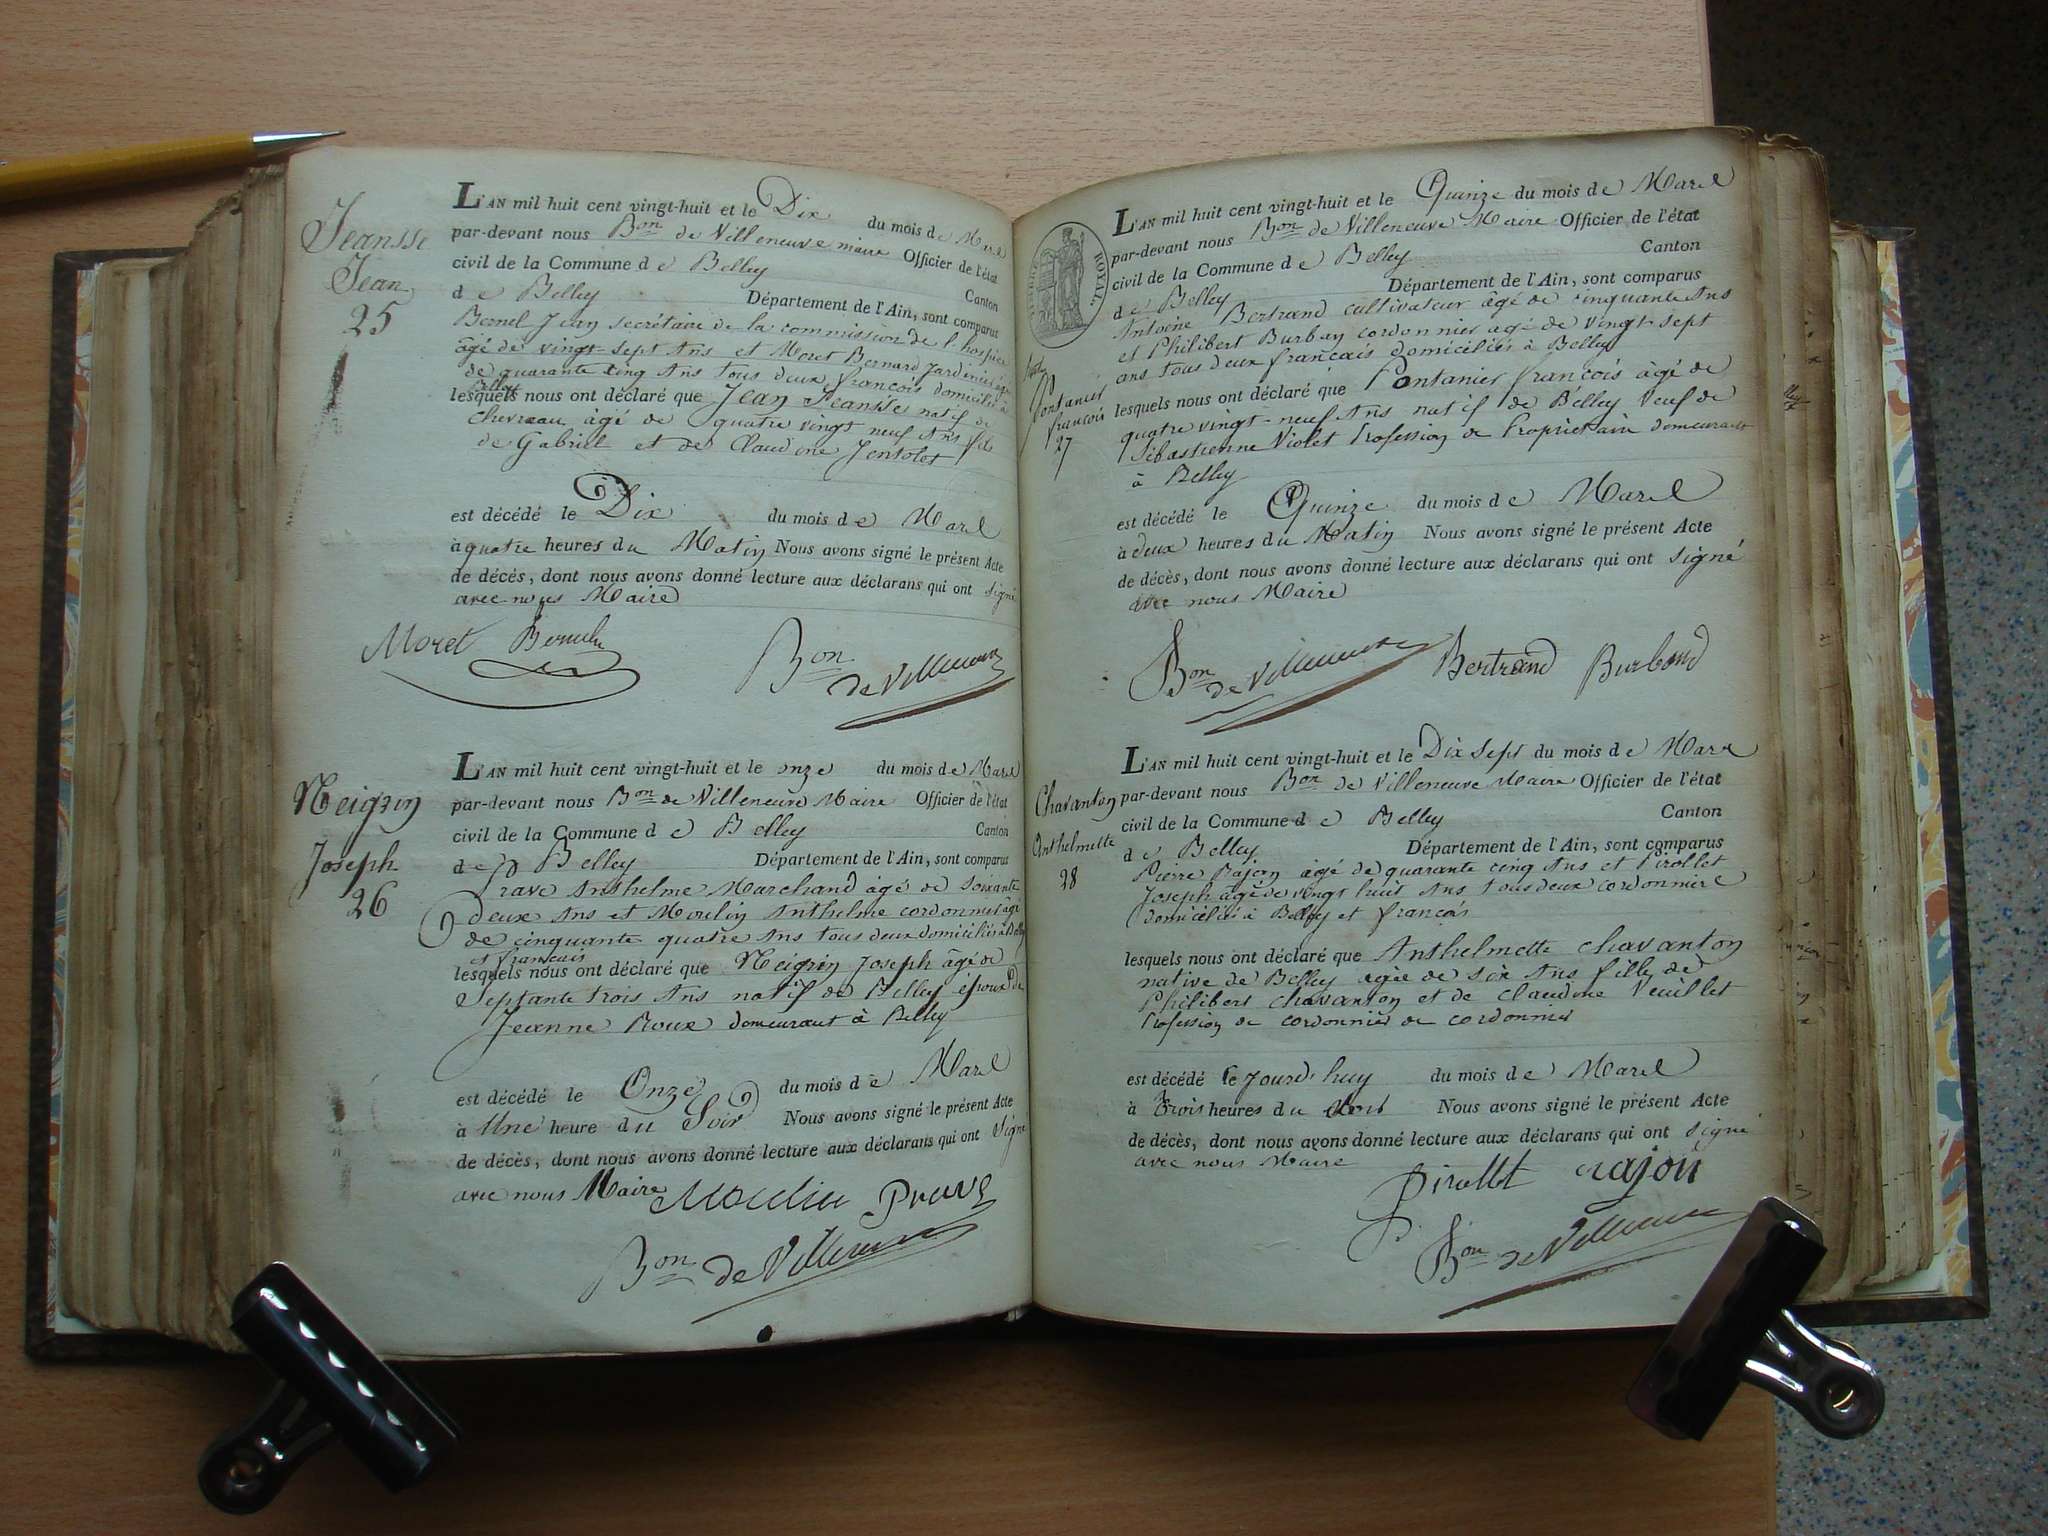 Jeansse
Jean
25
L'AN mil huit cent vingt-huit et le Dix du mois de Mars
par-devant nous Bon de Villeneuve maire Officier de l'état
civil de la Commune de Belley Canton
de Belley Département de l'Ain, sont comparus
Bernel Jean secrétaire de la commission de l'hospice
âgé de vingt-sept Ans et Moret Bernard Jardinier âgé
de quarante cinq Ans tous deux francois domiciliés à
Belley
lesquels nous ont déclaré que Jean Jeansse natif de
chevreau âgé de quatre vingt neuf Ans fils
de Gabriel et de Claudine
est décédé le Dix du mois de Marsl
à quatre heures du Matin Nous avons signé le présent Acte
de décès, dont nous avons donné lecture aux déclarans qui ont signé
avec nous Maire
Moret
Bon
de Villeneuve
Neigrin
Joseph
26
L'AN mil huit cent vingt-huit et le onze du mois de Mars
par-devant nous Bon de Villeneuve Maire Officier de l'état
civil de la Commune de Belley Canton
de Belley Département de l'Ain, sont comparus
Prave Anthelme Marchand âgé de soixante
deux Ans et Moulin Anthelme cordonnier âgé
de cinquante quatre Ans tous deux domiciliés à Belley
et francais
lesquels nous ont déclaré que Neigrin Joseph âgé de
Septante trois Ans natif de Belley époux de
Jeanne Roux demeurant à Belley
est décédé le Onze du mois de Mars
à Une heure du Soir Nous avons signé le présent Acte
de décès, dont nous avons donné lecture aux déclarans qui ont Signé
avec nous Maire
Moulin Prave
Bon de Villeneuve
TIMBRE ROYAL
Pontanier
francois
27
L'AN mil huit cent vingt-huit et le Quinze du mois de Mars
par-devant nous Bon de Villeneuve Maire Officier de l'état
civil de la Commune de Belley Canton
de Belley Département de l'Ain, sont comparus
Antoine Bertrand cultivateur âgé de cinquante Ans
et Philibert Burban cordonnier agé de vingt-sept
ans tous deux francais domiciliés à Belley
lesquels nous ont déclaré que Pontanier francois âgé de
quatre vingt-neuf Ans natif de Belley Veuf de
Sébastienne Violet Profession de Propriétaire demeurant
à Belley
est décédé le Quinze du mois de Mars
à deux heures du Matin Nous avons signé le présent Acte
de décès, dont nous avons donné lecture aux déclarans qui ont signé
avec nous Maire
Bon de Villeneuve Bertrand Burband
Chavanton
Anthelmette
28
L'AN mil huit cent vingt-huit et le Dix Sept du mois de Mars
par-devant nous Bon de Villeneuve Maire Officier de l'état
civil de la Commune de Belley Canton
de Belley Département de l'Ain, sont comparus
Pierre Rajon âgé de quarante cinq Ans et Pirollet
Joseph âgé de vingt huit Ans tous deux cordonniers
domiciliés à Belley et francois
lesquels nous ont déclaré que Anthelmette Chavanton
native de Belley agée de Six Ans fille de
Philibert Chavanton et de Claudine Veuillet
Profession de cordonnier de cordonnier
est décédé le Jourd'huy du mois de Mars
à trois heures du Nous avons signé le présent Acte
de décès, dont nous avons donné lecture aux déclarans qui ont signé
avec nous Maire
Pirollet Rajon
Bon de Villeneuve